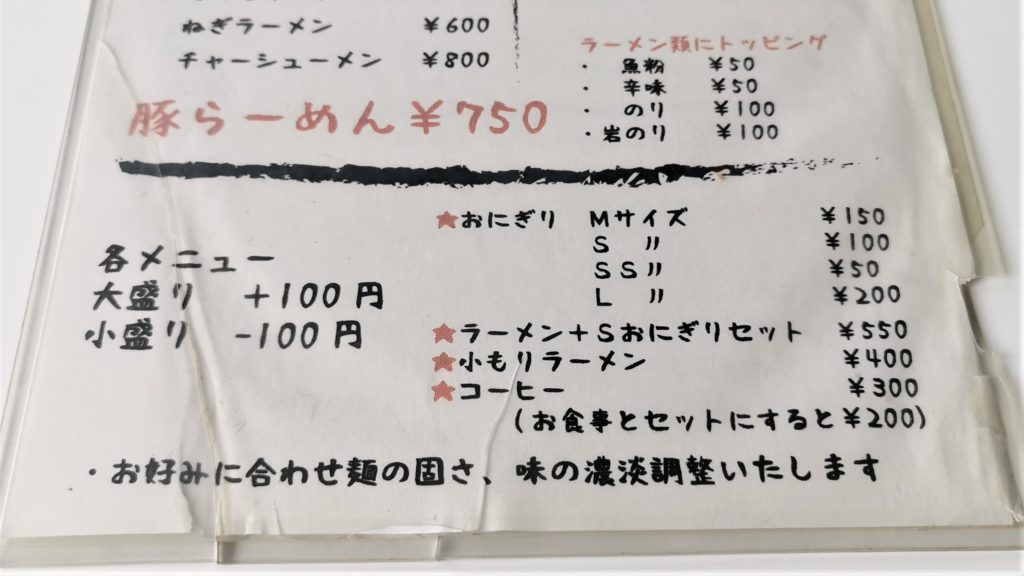 ねぎラーメン ¥600
チャーシューメン ¥800
豚らーめん ¥750
ラーメン類にトッピング
・ 魚粉 ¥50
・ 辛味 ¥50
・ のり ¥100
・岩のり ¥100
各メニュー
大盛り +100円
小盛り -100円
★おにぎり Mサイズ ¥150
S 〃 ¥100
SS〃 ¥50
L 〃 ¥200
★ラーメン+Sおにぎりセット ¥550
★小もりラーメン ¥400
★コーヒー ¥300
(お食事とセットにすると¥200)
・お好みに合わせ麺の固さ、味の濃淡調整いたします